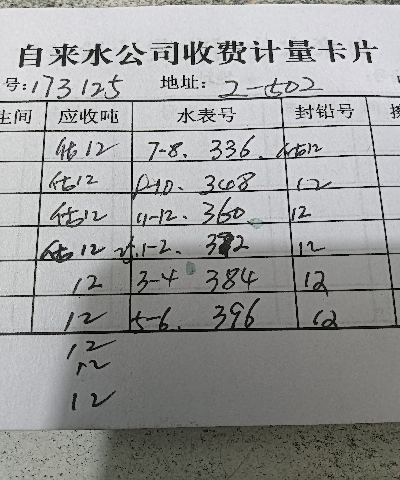 自来水公司收费计量卡片
号:173125 地址: 2-502
生间 应收吨 水表号 封铅号
估12 7-8. 336. 估12
估12 9-10. 348 12
估12 11-12. 360 12
估12 1-2. 372 12
12 3-4 384 12
12 5-6. 396 12
12
12
12